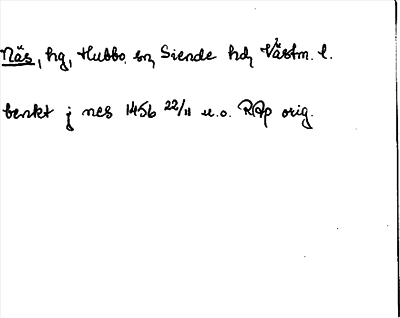 Näs, hg, Hubbo sn, Siende hd, Västm. l.
benkt j nes 1456 22/11 u.o. RAp orig.